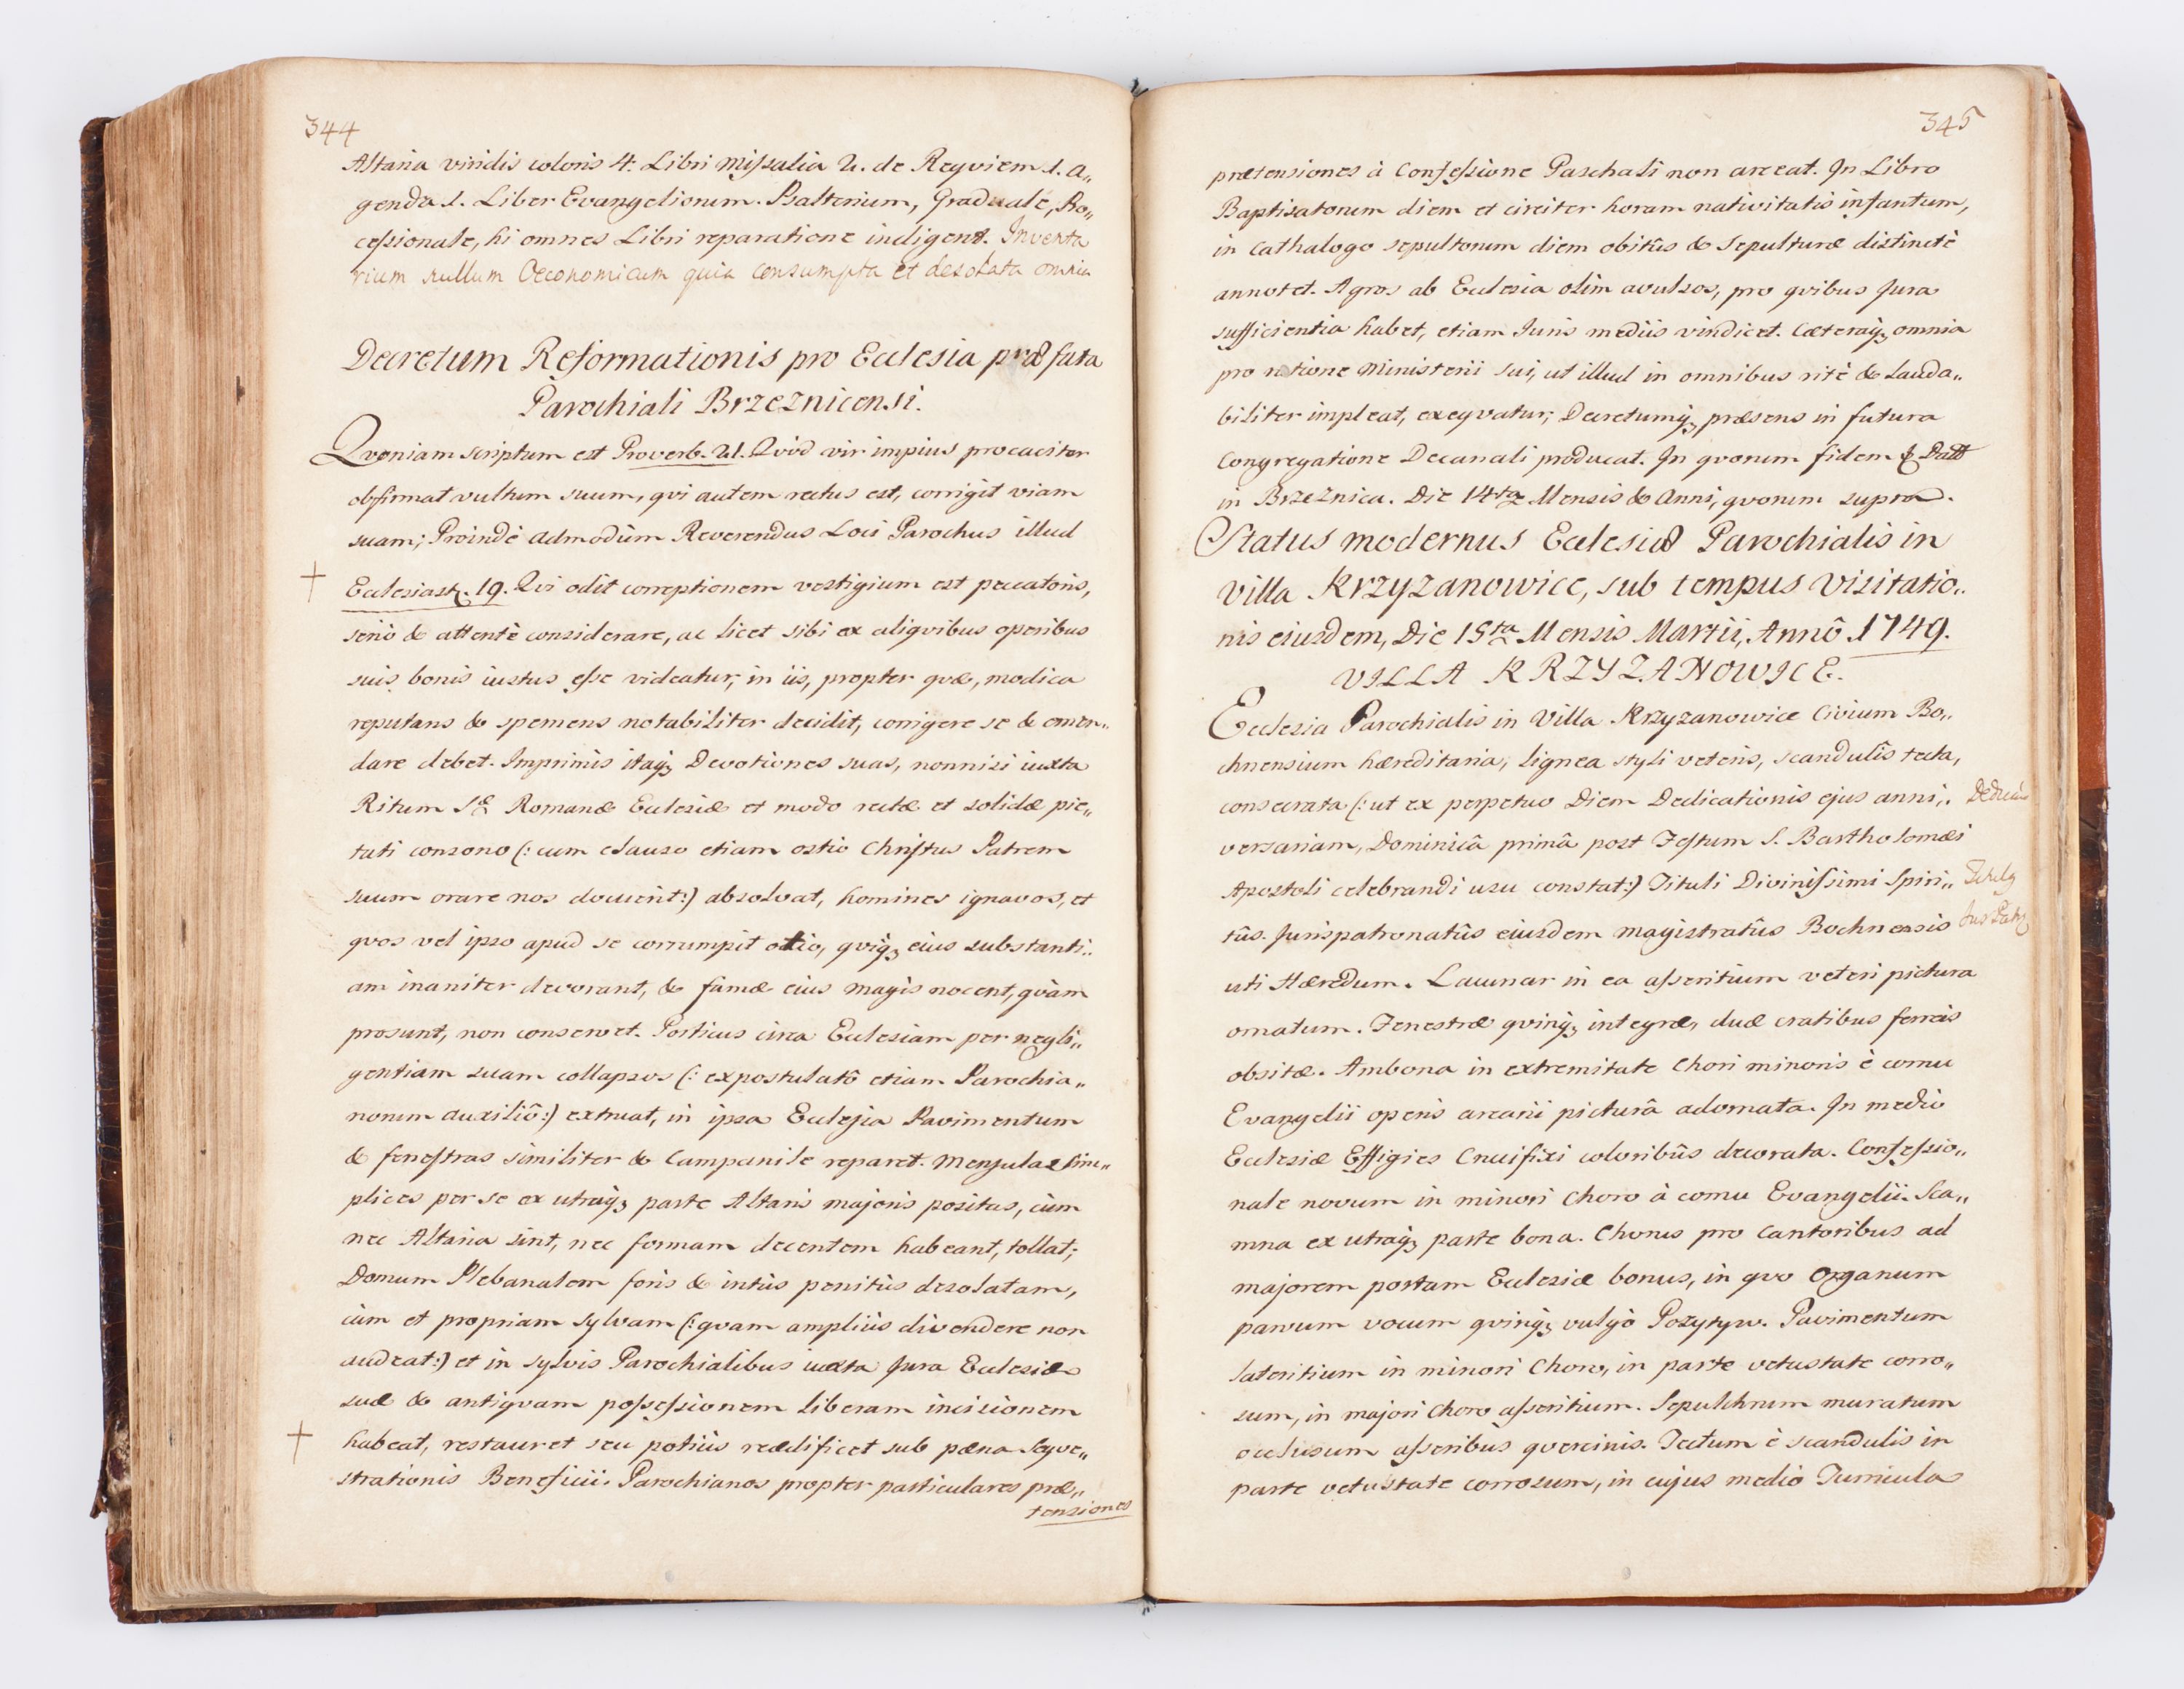 344
Altaria viridis coloris 4. Libri Missalia 2. de Reqviem 1. A„
genda 1. Liber Evangeliorum. Psalterium, Graduale, Pro„
cessionale, hi omnes Libri reparatione indigent. Inventa
rium nullum Oeconomicum quia consumpta et desolata omnia
Decretum Reformationis pro Ecclesia præfata
Parochiali Brzeznicensi.
Qvoniam scriptum est Proverb. 21. Qvòd vir impius procaciter
obfirmat vultum suum, qvi autem rectus est, corrigit viam
suam; Proindè Admodùm Reverendus Loci Parochus illud
Ecclesiast. 19. Qvi odit correptionem vestigium est peccatoris,
seriò & attentè considerare, ac licet sibi ex aliqvibus operibus
suis bonis iustus esse videatur, in iis, propter qvæ, modica
reputans & spernens notabiliter decidit, corrigere se & emen„
dare debet. Imprimis itaq; Devotiones suas, nonnisi iuxta
Ritum S. Romanæ Ecclesiæ et modo rectæ et solidæ pie„
tati consono (: cum clauso etiam ostio Christus Patrem
suum orare nos docuerit:) absolvat, homines ignavos, et
qvos vel ipso apud se corrumpit otio, qviq; eius substanti„
am inaniter devorant, & famæ eius magis nocent, qvàm
prosunt, non conservet. Porticus circa Ecclesiam per negli„
gentiam suam collapsos (: expostulatô etiam Parochia„
norum auxiliô:) extruat, in ipsa Ecclesia Pavimentum
& fenestras similiter & Campanile reparet. Mensulas sim„
plices per se ex utraq; parte Altaris majoris positas, cùm
nec Altaria sint, nec formam decentem habeant, tollat;
Domum Plebanalem foris & intùs penitùs desolatam,
cùm et propriam sylvam (: qvam ampliùs divendere non
audeat:) et in sylvis Parochialibus iuxta Jura Ecclesiæ
suæ & antiqvam possessionem liberam incisionem
habeat, restauret seu potiùs reædificet sub pæna Seqve„
strationis Beneficii. Parochianos propter particulares præ„
tensiones
345
prætensiones à Confessione Paschali non arceat. In Libro
Baptisatorum diem et circiter horam nativitatis infantum,
in Cathalogo sepultorum diem obitûs & Sepulturæ distinctè
annotet. Agros ab Ecclesia olim avulsos, pro qvibus Jura
sufficientia habet, etiam Juris mediis vindicet. Cæteraq; omnia
pro ratione Ministerii sui, ut illud in omnibus ritè & lauda„
biliter impleat, exeqvatur; Decretumq; præsens in futura
Congregatione Decanali producat. In qvorum fidem & Datt
in Brzeznica. Die 14ta Mensis & Anni, qvorum supra.
Status modernus Ecclesiæ Parochialis in
Villa Krzyzanowice, sub tempus Visitatio„
nis eiusdem, Die 15ta Mensis Martii, Annô 1749.
VILLA KRZYZANOWICE.
Ecclesia Parochialis in Villa Krzyzanowice Civium Bo„
chnensium hæreditaria, lignea styli veteris, scandulis tecta,
consecrata (: ut ex perpetuo Diem Dedicationis ejus anni„
versariam, Dominicâ primâ post Festum S. Bartholomæi
Apostoli celebrandi usu constat:) Tituli Divinissimi Spiri„
tûs. Jurispatronatûs eiusdem Magistratûs Bochnensis
Jus Patr
uti Hæredum. Lacunar in ea asseritium veteri pictura
ornatum. Fenestræ qvinq; integræ, duæ cratibus ferreis
obsitæ. Ambona in extremitate Chori minoris è cornu
Evangelii operis arcarii picturâ adornata. In medio
Ecclesiæ Effigies Crucifixi coloribûs decorata. Confessio„
nale novum in minori Choro à cornu Evangelii. Sca„
mna ex utraq; parte bona. Chorus pro Cantoribus ad
majorem portam Ecclesiæ bonus, in qvo Organum
parvum vocum qvinq; vulgò Pozytyw. Pavimentum
lateritium in minori Choro, in parte vetustate corro„
sum, in majori Choro asseritium. Sepulchrum muratum
occlusum asseribus qvercinis. Tectum è scandulis in
parte vetustate corrosum, in cujus medio Turricula